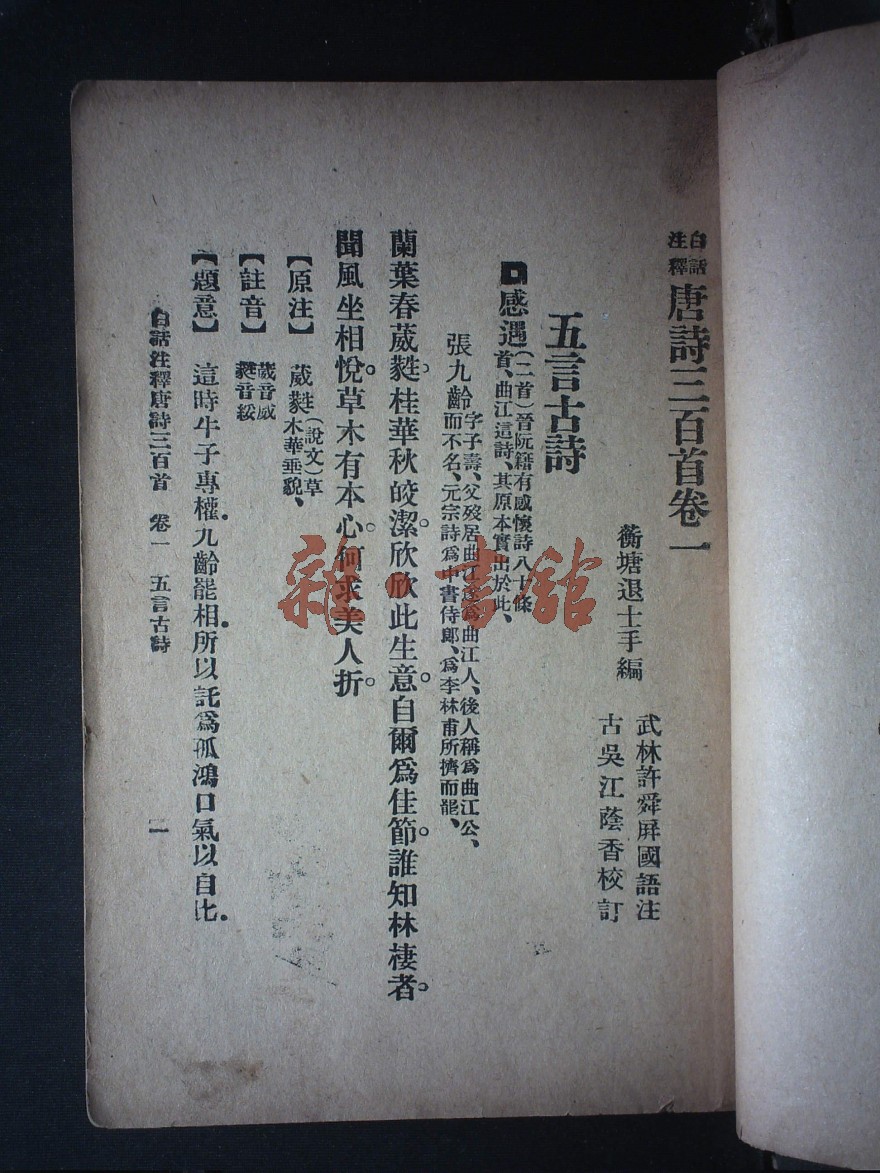 白話注釋唐詩三百首卷一
衡塘退士手編
武林許舜屏國語注
古吳江蔭香校訂
五言古詩
感遇(二首)晉阮籍有感懷詩八十餘首、曲江這詩、其原本實出於此、
張九齡字子壽、父歿居曲江、遂爲曲江人、後人稱爲曲江公、而不名、元宗詩爲中書侍郎、爲李林甫所擠而罷、
蘭葉春葳蕤。桂華秋皎潔。欣欣此生意。自爾爲佳節。誰知林棲者。
聞風坐相悅。草木有本心。何求美人折。
【原注】葳蕤(說文)草木華垂貌、
【註音】葳音威蕤音綏
【題意】這時牛子專權。九齡罷相。所以託爲孤鴻口氣以自比。
白話注釋唐詩三百首 卷一 五言古詩 二
雜·書館